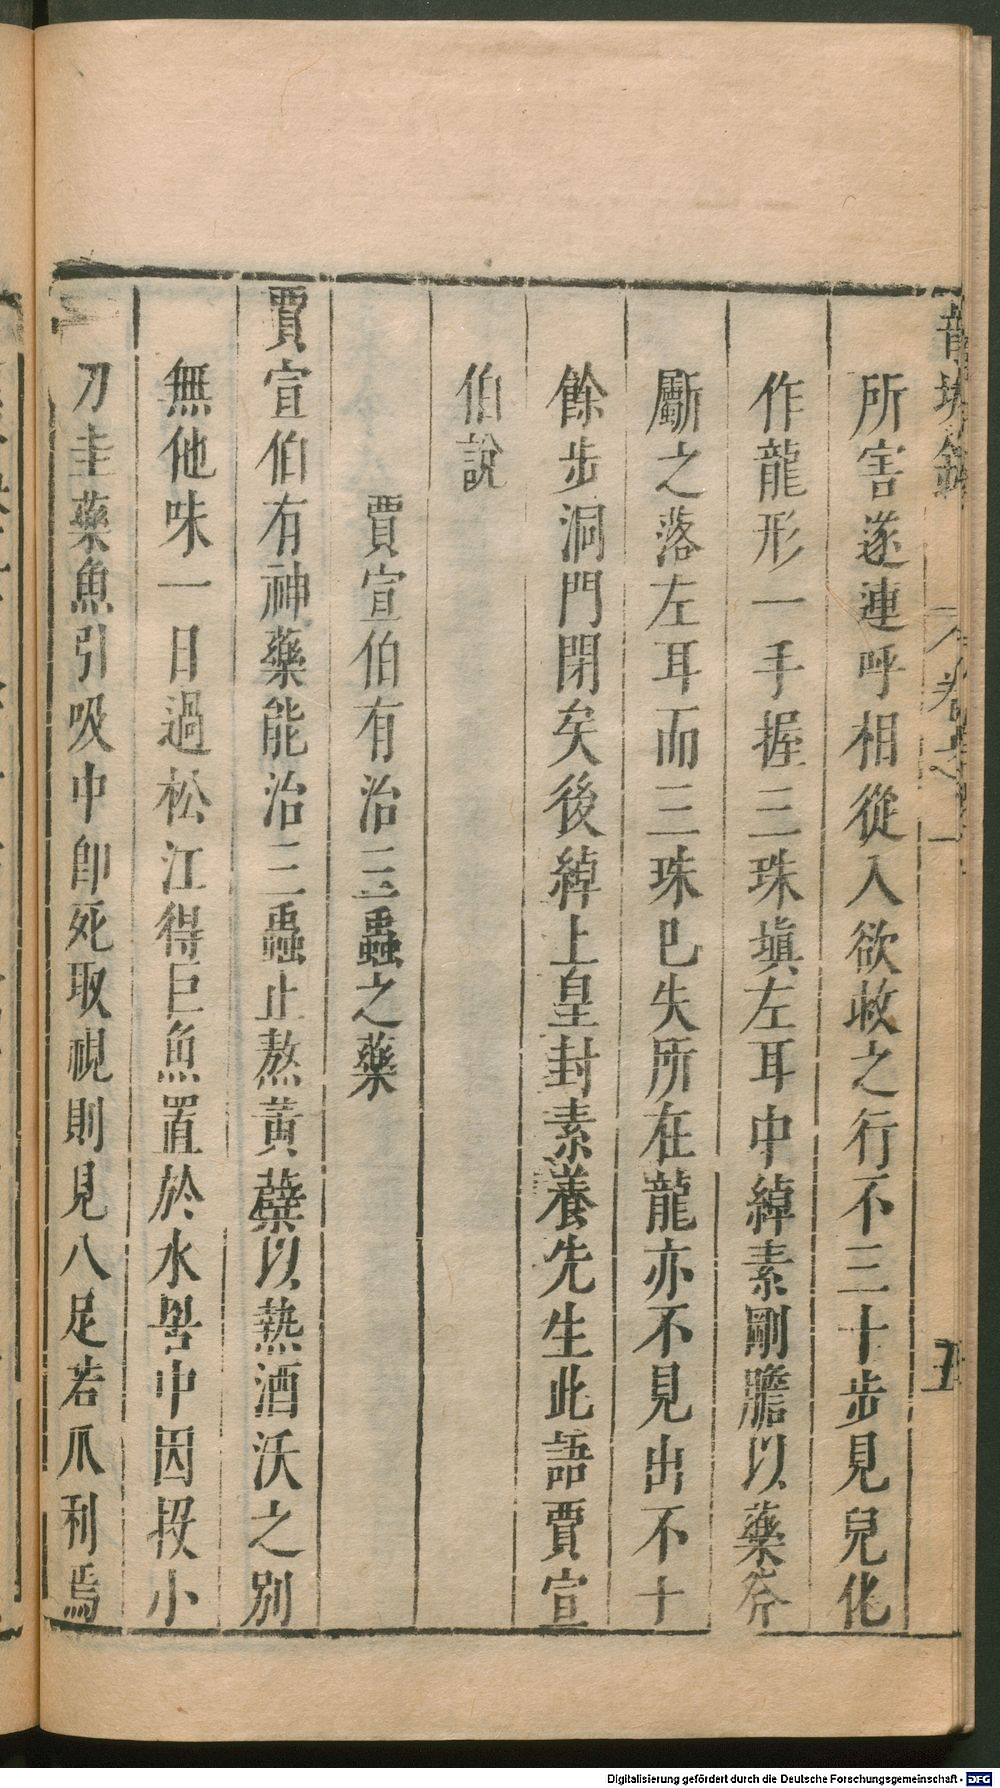 所害遂連呼相從入欲收之行不三十步見兒化
作龍形一手握三珠塡左耳中綽素剛膽以藥斧
斸之落左耳而三珠已失所在龍亦不見出不十
餘步洞門閉矣後綽上皇封素養先生此語賈宣
伯說
賈宣伯有治三蟲之藥
賈宣伯有神藥能治三蟲止熬黃蘗以熱酒沃之別
無他味一日過松江得巨魚置於水罟中因投小
刀圭藥魚引吸中卽死取視則見八足若爪利焉
五
Digitalisierung gefördert durch die Deutsche Forschungsgemeinschaft - DFG